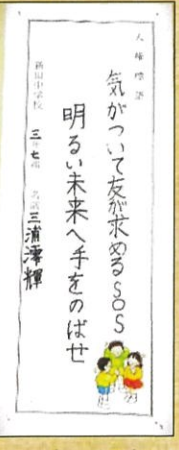 人権標語
気がついて友が求めるSOS
明るい未来へ手をのばせ
新田中学校 三年七組 名前 三浦澪輝